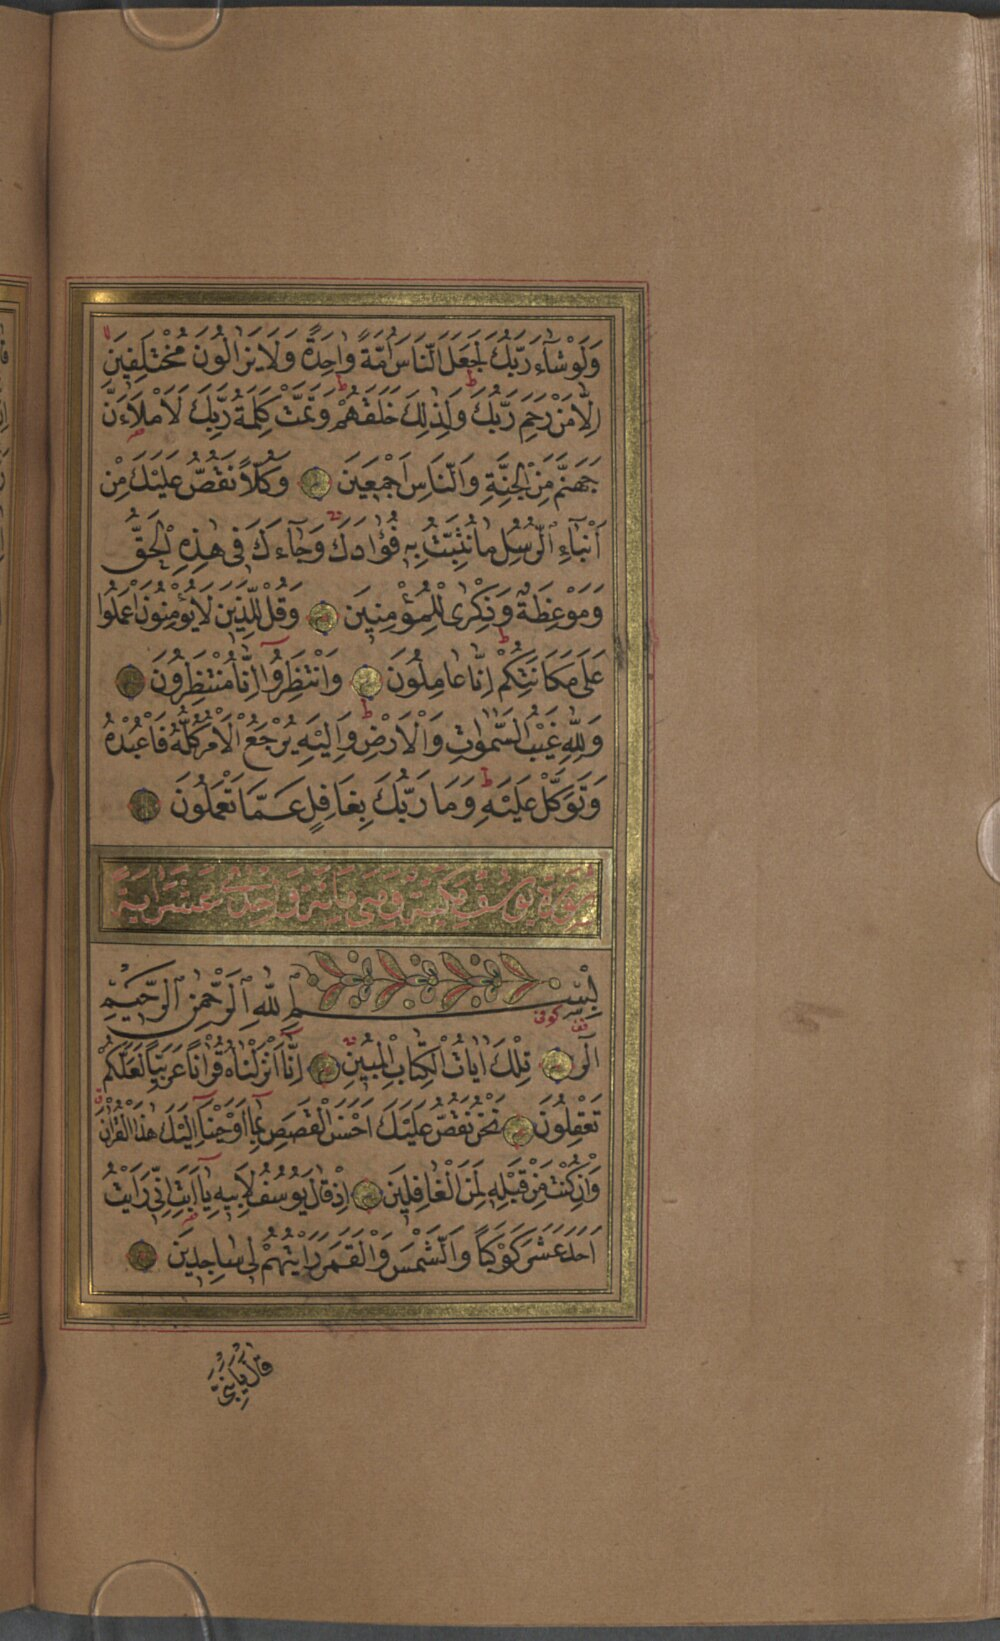 وَلَوْ شَاءَ رَبُّكَ لَجَعَلَ النَّاسَ أُمَّةً وَاحِدَةً وَلَا يَزَالُونَ مُخْتَلِفِينَ
إِلَّا مَنْ رَحِمَ رَبُّكَ وَلِذٰلِكَ خَلَقَهُمْ وَتَمَّتْ كَلِمَةُ رَبِّكَ لَأَمْلَأَنَّ
جَهَنَّمَ مِنَ الْجِنَّةِ وَالنَّاسِ أَجْمَعِينَ وَكُلًّا نَقُصُّ عَلَيْكَ مِنْ
أَنْبَاءِ الرُّسُلِ مَا نُثَبِّتُ بِهِ فُؤَادَكَ وَجَاءَكَ فِى هٰذِهِ الْحَقُّ
وَمَوْعِظَةٌ وَذِكْرٰى لِلْمُؤْمِنِينَ وَقُلْ لِلَّذِينَ لَا يُؤْمِنُونَ اعْمَلُوا
عَلٰى مَكَانَتِكُمْ إِنَّا عَامِلُونَ وَانْتَظِرُوا إِنَّا مُنْتَظِرُونَ
وَلِلّٰهِ غَيْبُ السَّمٰوَاتِ وَالْأَرْضِ وَإِلَيْهِ يُرْجَعُ الْأَمْرُ كُلُّهُ فَاعْبُدْهُ
وَتَوَكَّلْ عَلَيْهِ وَمَا رَبُّكَ بِغَافِلٍ عَمَّا تَعْمَلُونَ
سُورَةُ يُوسُفَ مَكِّيَّةٌ وَهِىَ مِائَةٌ وَاحِدَىٰ عَشَرَ اٰيَةً
بِسْمِ اللّٰهِ الرَّحْمٰنِ الرَّحِيمِ
الٓرٰ تِلْكَ اٰيَاتُ الْكِتَابِ الْمُبِينِ إِنَّا أَنْزَلْنَاهُ قُرْاٰنًا عَرَبِيًّا لَعَلَّكُمْ
تَعْقِلُونَ نَحْنُ نَقُصُّ عَلَيْكَ أَحْسَنَ الْقَصَصِ بِمَا أَوْحَيْنَا إِلَيْكَ هٰذَا الْقُرْاٰنَ
وَإِنْ كُنْتَ مِنْ قَبْلِهِ لَمِنَ الْغَافِلِينَ إِذْ قَالَ يُوسُفُ لِأَبِيهِ يَا أَبَتِ إِنِّى رَأَيْتُ
أَحَدَ عَشَرَ كَوْكَبًا وَالشَّمْسَ وَالْقَمَرَ رَأَيْتُهُمْ لِى سَاجِدِينَ
قَالَ يَا بُنَىَّ